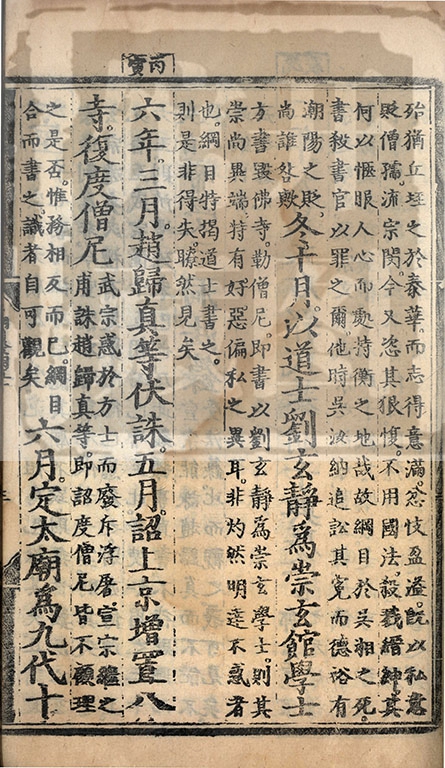 殆猶丘垤之於泰華而志得意滿。忿忮盈溢。既以私意
貶僧孺。流宗閔。今又恣其狠愎。不用國法。殺戮縉紳。其
何以愜眼人心而處持衡之地哉。故綱目於吳湘之死。
書殺書官以罪之爾。他時吳汝納追訟其寃而德裕有
潮陽之貶。
尚誰咎歟
冬十月。以道士劉玄靜爲崇玄館學士
方書毀佛寺。勒僧尼。即書以劉玄靜爲崇玄學士。則其
崇尚異端。特有好惡偏私之異耳。非灼然明達不惑者
也。綱目特揭道士書之。
則是非得失。瞭然見矣
丙寅
六年。三月。趙歸真等伏誅。五月。詔上京增置八
寺。復度僧尼
武宗惑於方士而廢斥浮屠。宣宗繼之
甫誅趙歸真等。即詔度僧尼。皆不顧理
之是否。惟務相反而已。綱目
合而書之。識者自可觀矣
六月。定太廟爲九代十